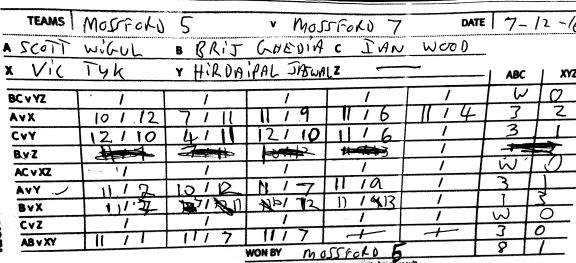 TEAMS MOSSFORD 5 V MOSSFORD 7 DATE 7-12-
A SCOTT WIGUL B BRIJ GHEDIA C IAN WOOD
X VIC TYK Y HIRDAIPAL JASWAL Z —
ABC XYZ
BCvYZ / / / / / W 0
AvX 10 / 12 7 / 11 11 / 9 11 / 6 11 / 4 3 2
CvY 12 / 10 4 / 11 12 / 10 11 / 6 / 3 1
BvZ
ACvXZ / / / / / W 0
AvY 11 / 2 10 / 12 11 / 7 11 / 9 / 3 1
BvX 11 / / 1 3
CvZ / / / / / W 0
ABvXY 11 / 1 11 / 7 11 / 7 / / 3 0
WON BY MOSSFORD 5 8 1